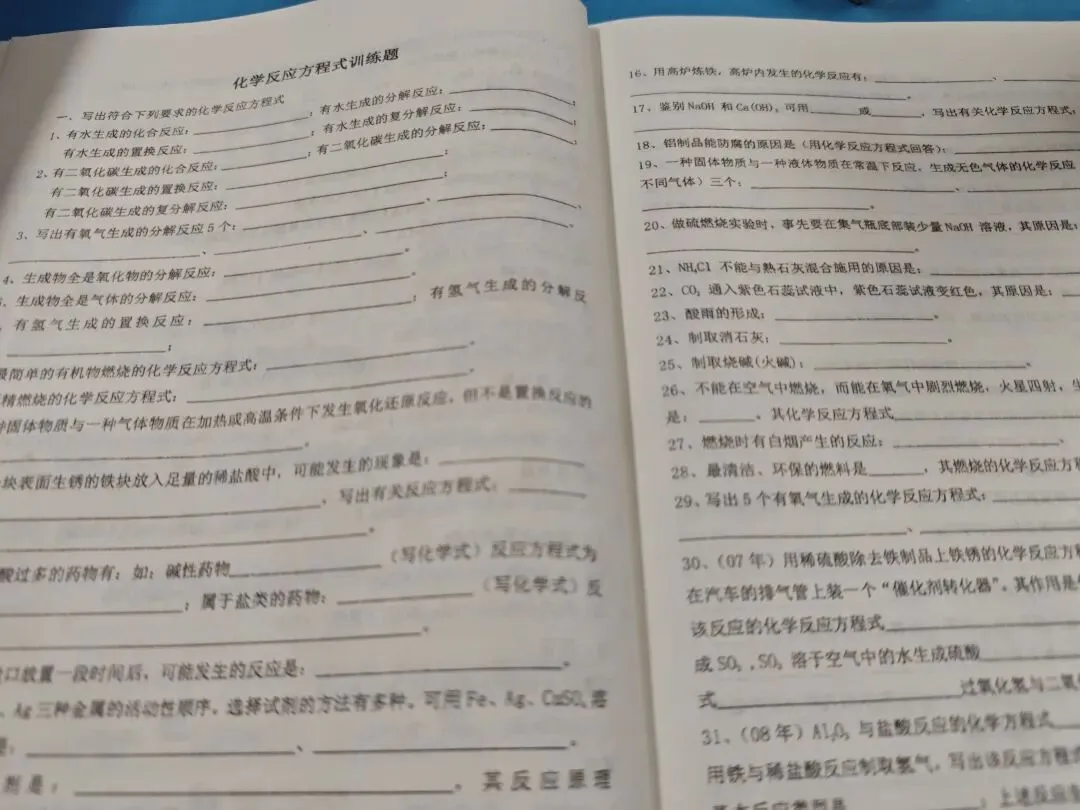 化学反应方程式训练题
一、写出符合下列要求的化学反应方程式
1、有水生成的化合反应:____________;有水生成的分解反应:____________;
有水生成的置换反应:____________;有水生成的复分解反应:____________;
2、有二氧化碳生成的化合反应:____________;有二氧化碳生成的分解反应:____________;
有二氧化碳生成的置换反应:____________;
有二氧化碳生成的复分解反应:____________;
3、写出有氧气生成的分解反应5个:____________、____________、
____________、____________、____________。
4、生成物全是氧化物的分解反应:____________。
、生成物全是气体的分解反应:____________。
有氢气生成的置换反应:____________;有氢气生成的分解反
____________;
最简单的有机物燃烧的化学反应方程式:____________。
精燃烧的化学反应方程式:____________。
固体物质与一种气体物质在加热或高温条件下发生氧化还原反应,但不是置换反应的
____________。
块表面生锈的铁块放入足量的稀盐酸中,可能发生的现象是:____________
____________,写出有关反应方程式:____________
____________。
酸过多的药物有:如:碱性药物____________(写化学式)反应方程式为
____________;属于盐类的药物:____________(写化学式)反
____________。
口放置一段时间后,可能发生的反应是:____________。
、Ag三种金属的活动性顺序,选择试剂的方法有多种,可用Fe、Ag、CuSO₄溶
:____________、____________。
别是:____________。其反应原理
16、用高炉炼铁,高炉内发生的化学反应有:____________、____________
____________。
17、鉴别NaOH 和Ca(OH)₂可用______或______,写出有关化学反应方程式:
____________
18、铝制品能防腐的原因是(用化学反应方程式回答):____________
19、一种固体物质与一种液体物质在常温下反应,生成无色气体的化学反应
不同气体)三个:____________、____________
____________。
20、做硫燃烧实验时,事先要在集气瓶底部装少量NaOH 溶液,其原因是:
____________。
21、NH₄Cl 不能与熟石灰混合施用的原因是:____________
22、CO₂通入紫色石蕊试液中,紫色石蕊试液变红色,其原因是:____
23、酸雨的形成:____________。
24、制取消石灰:____________。
25、制取烧碱(火碱):____________。
26、不能在空气中燃烧,而能在氧气中剧烈燃烧,火星四射,
是:______。其化学反应方程式____________
27、燃烧时有白烟产生的反应:____________、
28、最清洁、环保的燃料是______,其燃烧的化学反应方程
29、写出5个有氧气生成的化学反应方程式:____________
____________、____________
30、(07年)用稀硫酸除去铁制品上铁锈的化学反应方程
在汽车的排气管上装一个“催化剂转化器”。其作用是
该反应的化学反应方程式____________
成SO₃,SO₃溶于空气中的水生成硫酸____________
式____________过氧化氢与二氧
31、(08年)Al₂O₃与盐酸反应的化学方程式____________
用铁与稀盐酸反应制取氢气,写出该反应方程式
基本反应类型是____________;上述反应